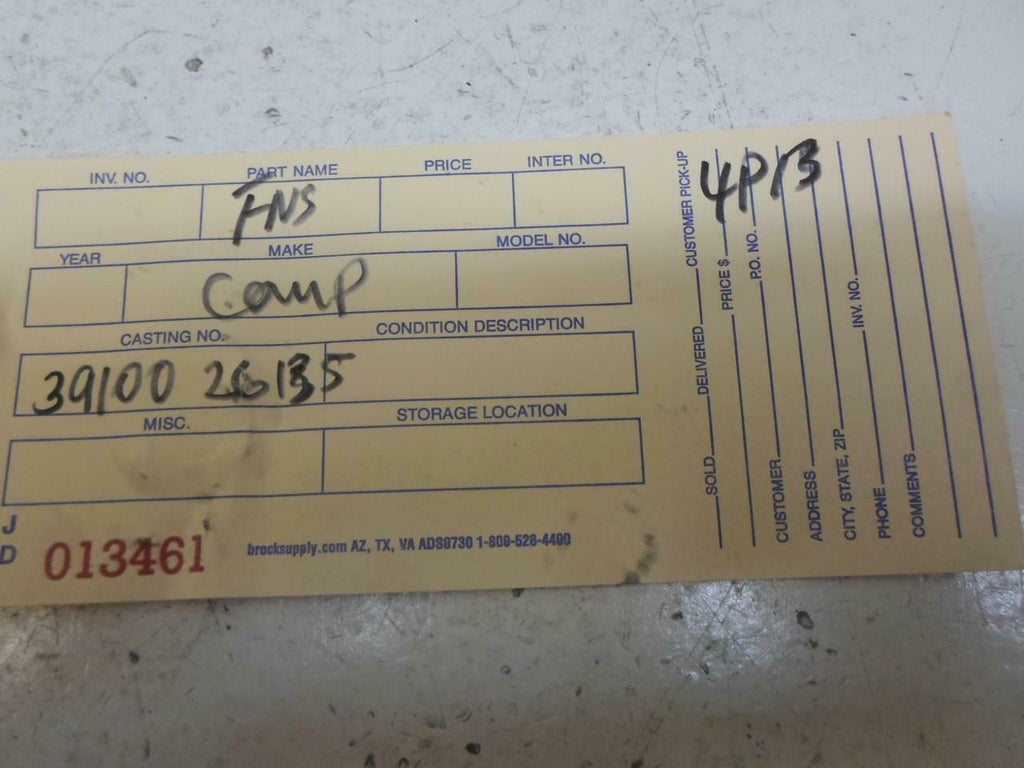 INV. NO. PART NAME PRICE INTER NO.
ENS
YEAR MAKE MODEL NO.
Comp
CASTING NO. CONDITION DESCRIPTION
39100 2G135
MISC. STORAGE LOCATION
J
D 013461 brocksupply.com AZ, TX, VA ADS0730 1-800-528-4400
SOLD DELIVERED CUSTOMER PICK-UP
4P13
PRICE $
P.O. NO.
CUSTOMER
ADDRESS
CITY, STATE, ZIP INV. NO.
PHONE
COMMENTS